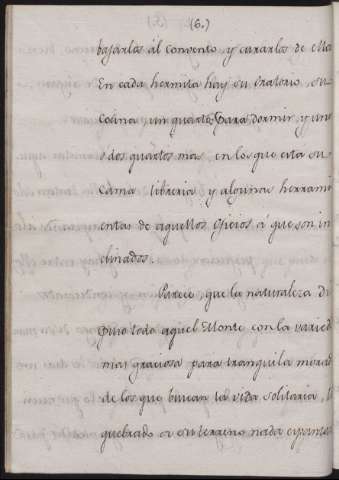 (6.)
bajarlas ál convento y curarlas de ella
En cada hermita hay su Oratorio, su
Cocina un quarto para dormir, y uno
ó dos quartos mas en los que esta su
Cama libreria y algunas herrami
entas de aquellos Oficios á que son in
clinados.
Parece, que la naturaleza di
puso todo aquel Monte con la varied
mas graciosa para tranquila morad
de los que buscan la vida solitaria,
quebrado es su terreno nada